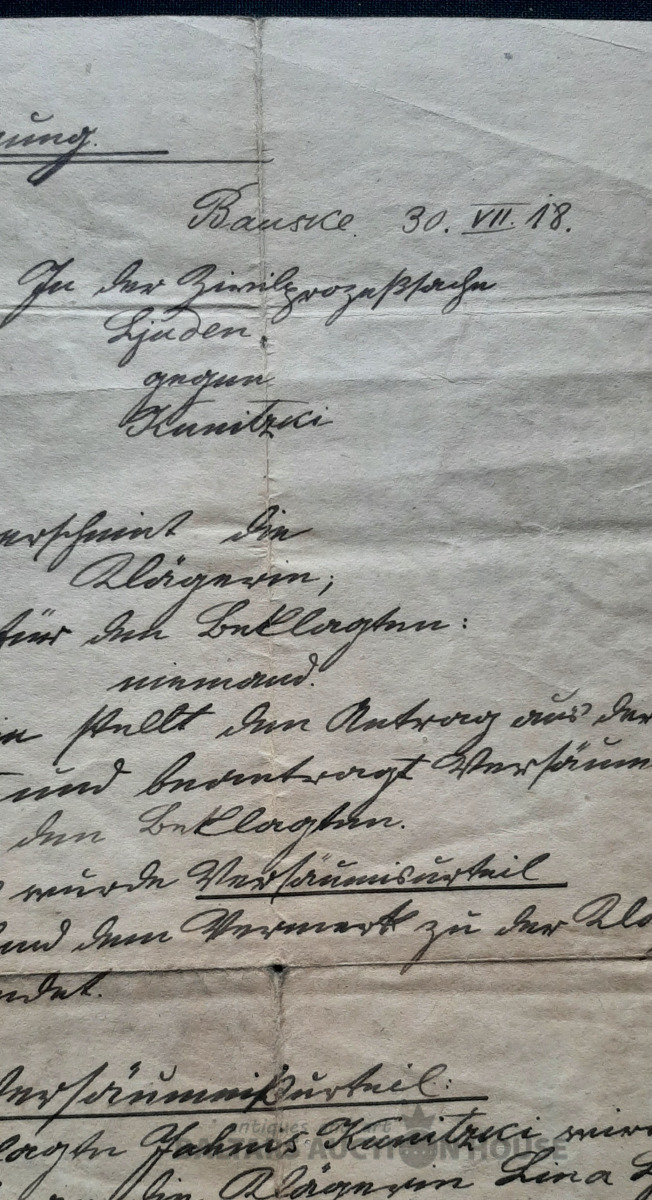 ung.
Bauske. 30. VII. 18.
In der Zivilprozeßsache
Ljuden
gegen
Kunitzki
erscheint die
Klägerin;
für den Beklagten:
niemand.
in stellt den Antrag aus der
und beantragt Versäum
den Beklagten.
wurde Versäumisurteil
end dem Vermerk zu der Kla
ndet.
Versäumnißurteil:
lagte Jahnis Kunitzki wird
die Klägerin Lina L
Antiques and art
BALTAJS AUCTION HOUSE